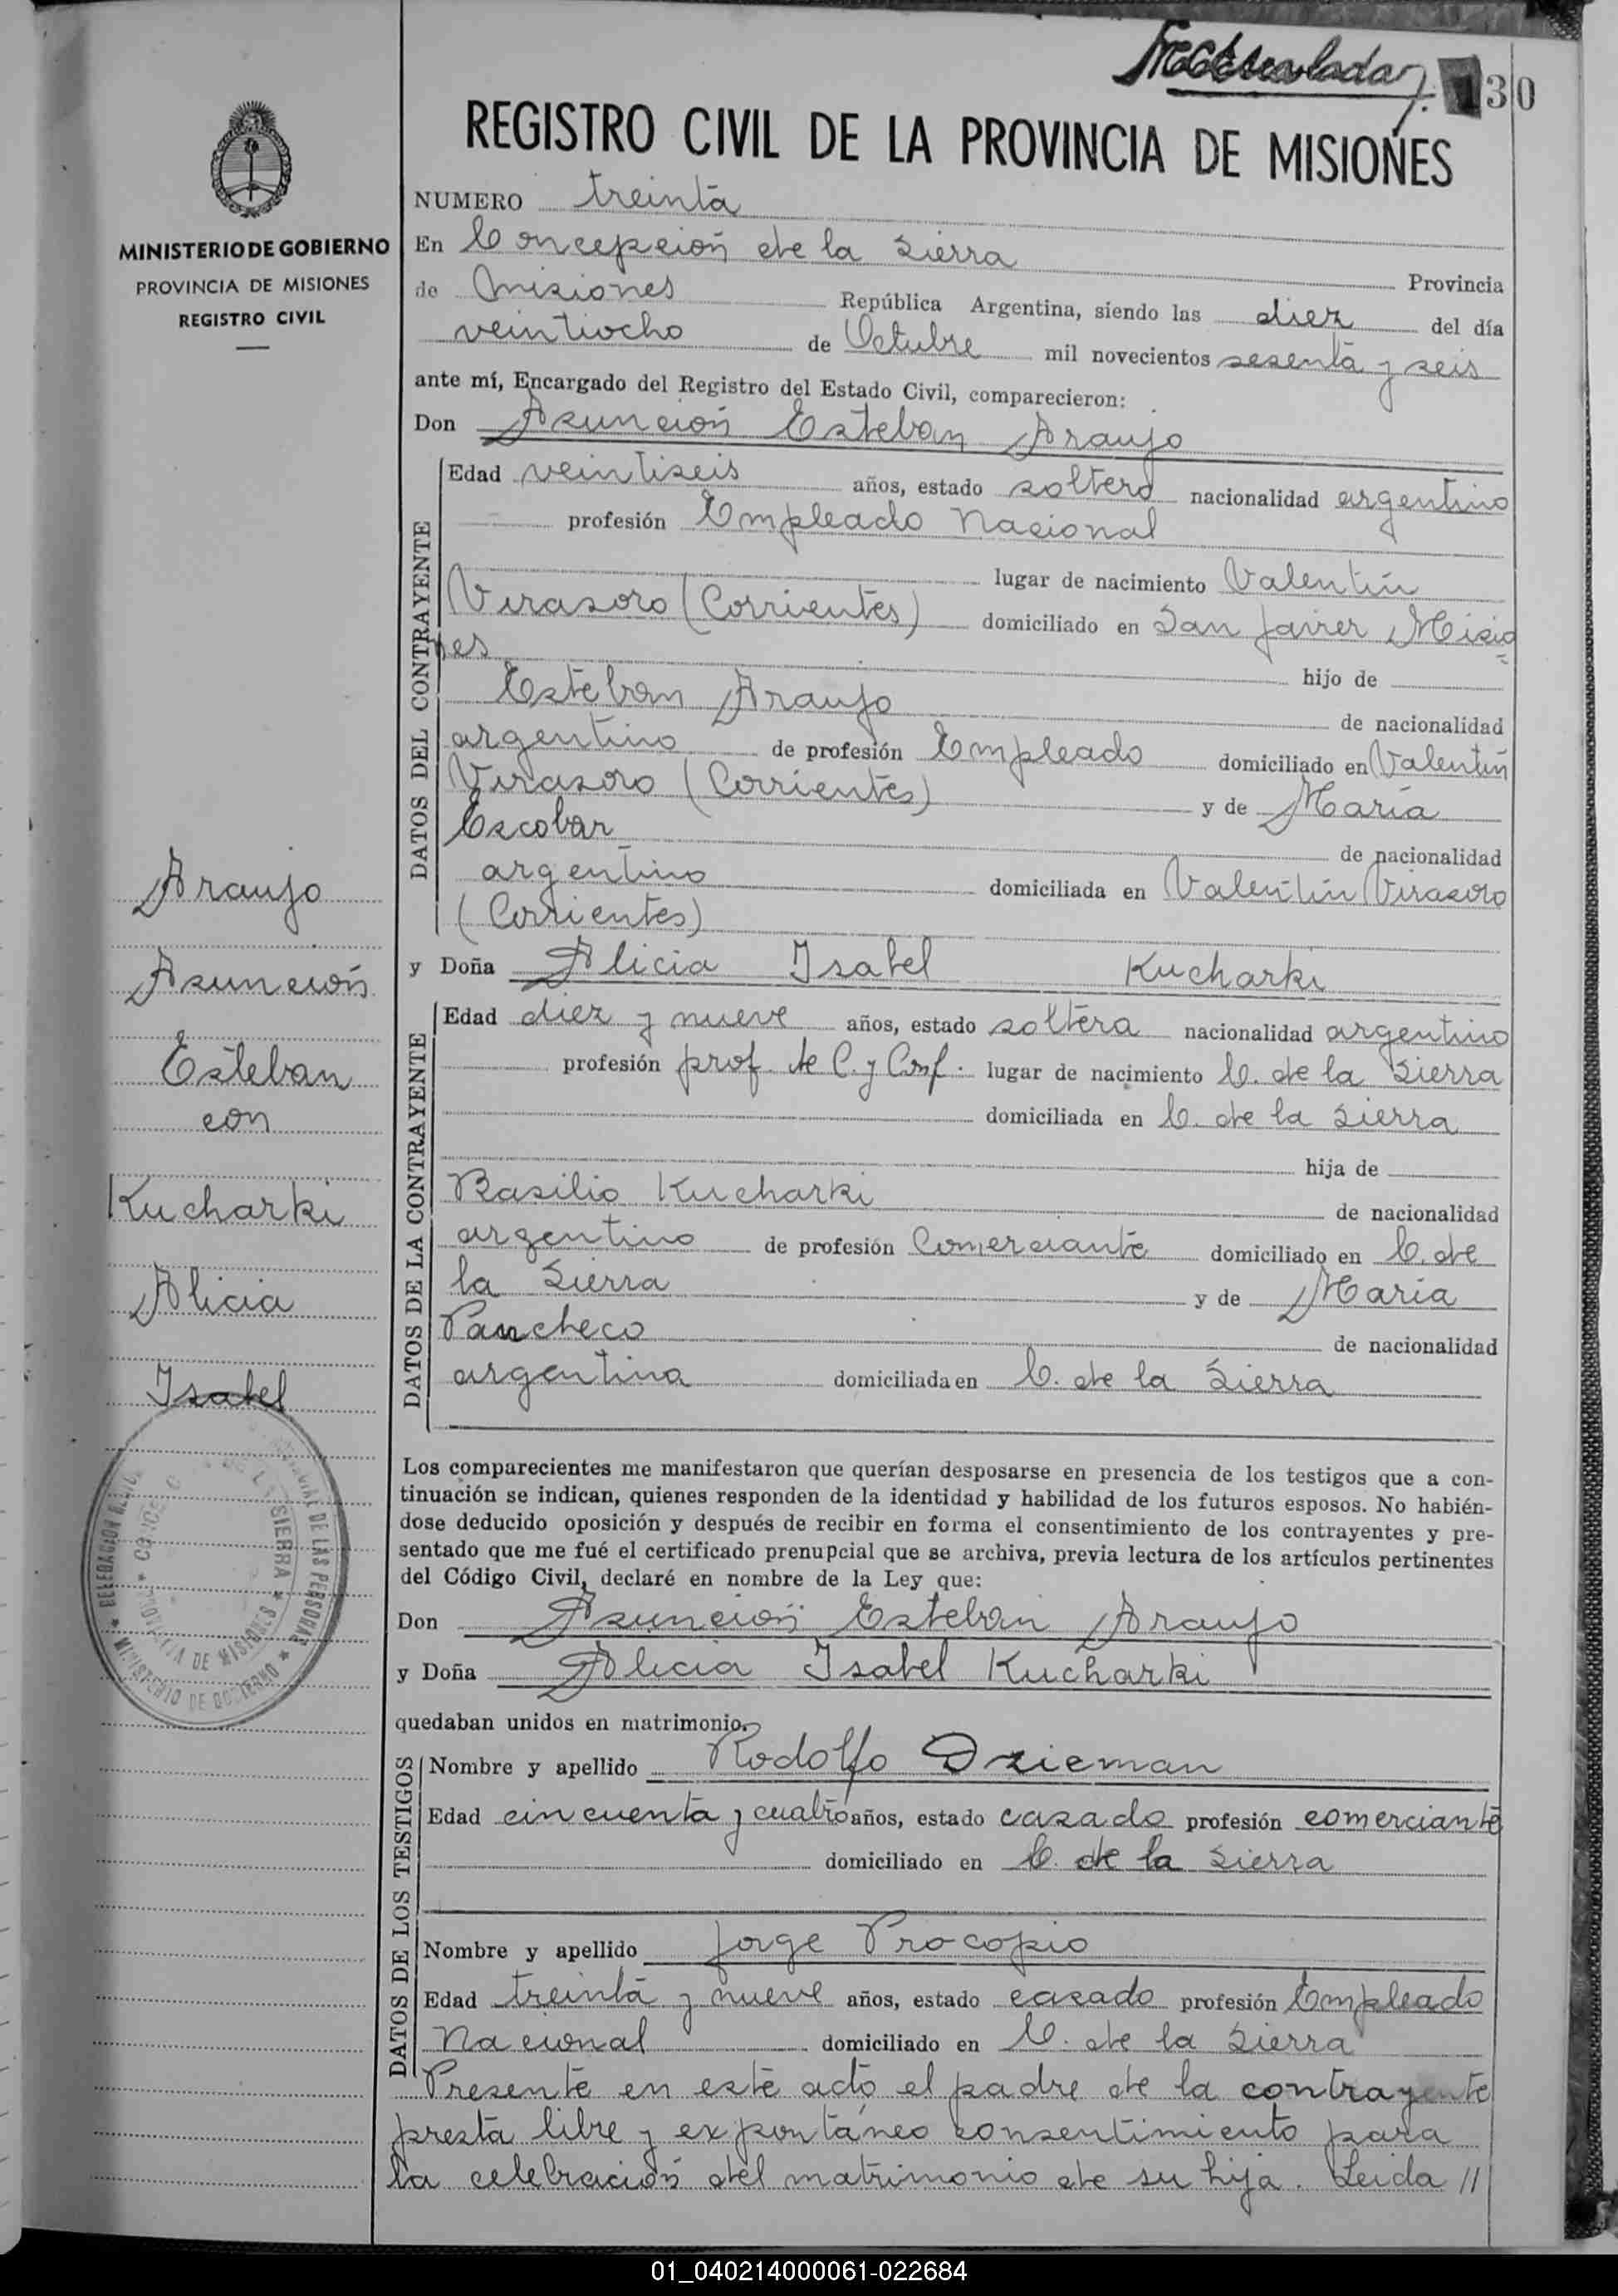 30
REGISTRO CIVIL DE LA PROVINCIA DE MISIONES
MINISTERIO DE GOBIERNO
PROVINCIA DE MISIONES
REGISTRO CIVIL
NUMERO treinta
En Concepción de la Sierra Provincia
de Misiones República Argentina, siendo las diez del día
veintiocho de Octubre mil novecientos sesenta y seis
ante mí, Encargado del Registro del Estado Civil, comparecieron:
Don Asunción Esteban Araujo
DATOS DEL CONTRAYENTE
Edad veintiseis años, estado soltero nacionalidad argentino
profesión Empleado Nacional
lugar de nacimiento Valentín
Virasoro (Corrientes) domiciliado en San Javier Misio
nes hijo de
Esteban Araujo de nacionalidad
argentino de profesión Empleado domiciliado en Valentín
Virasoro (Corrientes) y de María
Escobar de nacionalidad
argentino domiciliada en Valentín Virasoro
(Corrientes)
y Doña Alicia Isabel Kucharki
DATOS DE LA CONTRAYENTE
Edad diez y nueve años, estado soltera nacionalidad argentino
profesión prof. de C. y Conf. lugar de nacimiento C. de la Sierra
domiciliada en C. de la Sierra
hija de
Basilio Kucharki de nacionalidad
argentino de profesión Comerciante domiciliado en C. de
la Sierra y de María
Pancheco de nacionalidad
argentina domiciliada en C. de la Sierra
Araujo
Asunción
Esteban
con
Kucharki
Alicia
Isabel
Los comparecientes me manifestaron que querían desposarse en presencia de los testigos que a con-
tinuación se indican, quienes responden de la identidad y habilidad de los futuros esposos. No habién-
dose deducido oposición y después de recibir en forma el consentimiento de los contrayentes y pre-
sentado que me fué el certificado prenupcial que se archiva, previa lectura de los artículos pertinentes
del Código Civil, declaré en nombre de la Ley que:
Don Asunción Esteban Araujo
y Doña Alicia Isabel Kucharki
quedaban unidos en matrimonio.
DATOS DE LOS TESTIGOS
Nombre y apellido Rodolfo Dzieman
Edad cincuenta y cuatro años, estado casado profesión comerciante
domiciliado en C. de la Sierra
Nombre y apellido Jorge Procopio
Edad treinta y nueve años, estado casado profesión Empleado
Nacional domiciliado en C. de la Sierra
Presente en este acto el padre de la contrayente
presta libre y expontáneo consentimiento para
la celebración del matrimonio de su hija. Leida //
DE LAS PERSONAS
SIERRA
PROVINCIA DE MISIONES
MINISTERIO DE GOBIERNO
01_040214000061-022684